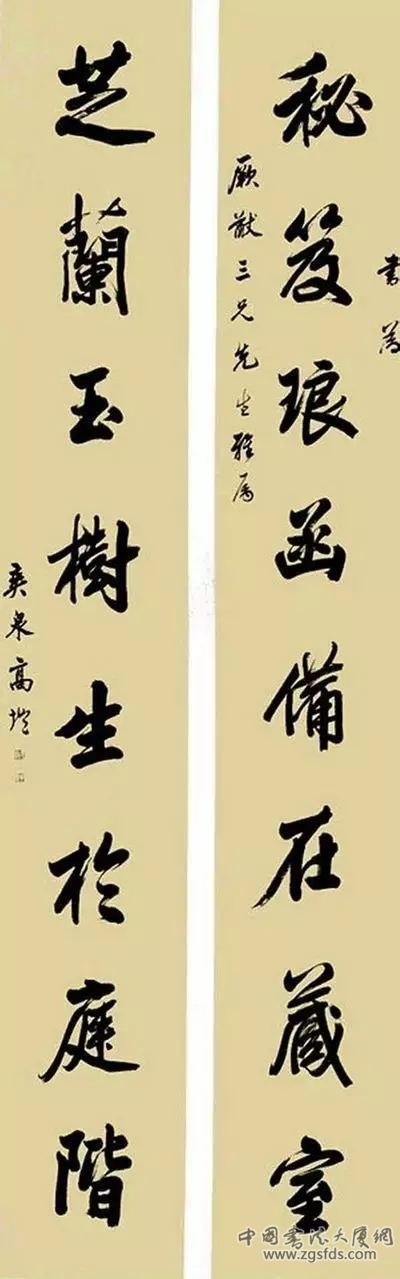 書為
秘笈琅函備在藏室
厥猷三兄先生雅屬
芝蘭玉樹生於庭階
爽泉高塏
中国书法大厦網
www.zgsfds.com